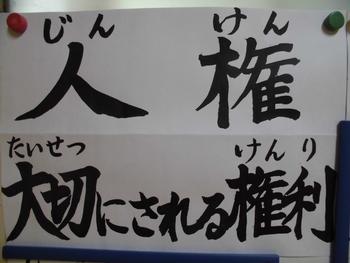 じん けん
人 権
たいせつ けんり
大切にされる権利